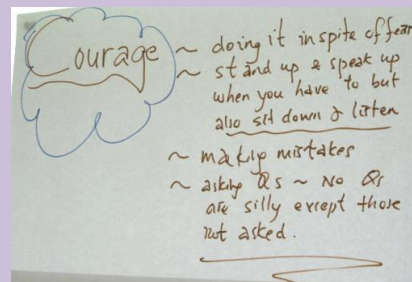 Courage
~ doing it in spite of fear
~ stand up & speak up
when you have to but
also sit down & listen
~ making mistakes
~ asking Qs ~ No Qs
are silly except those
not asked.